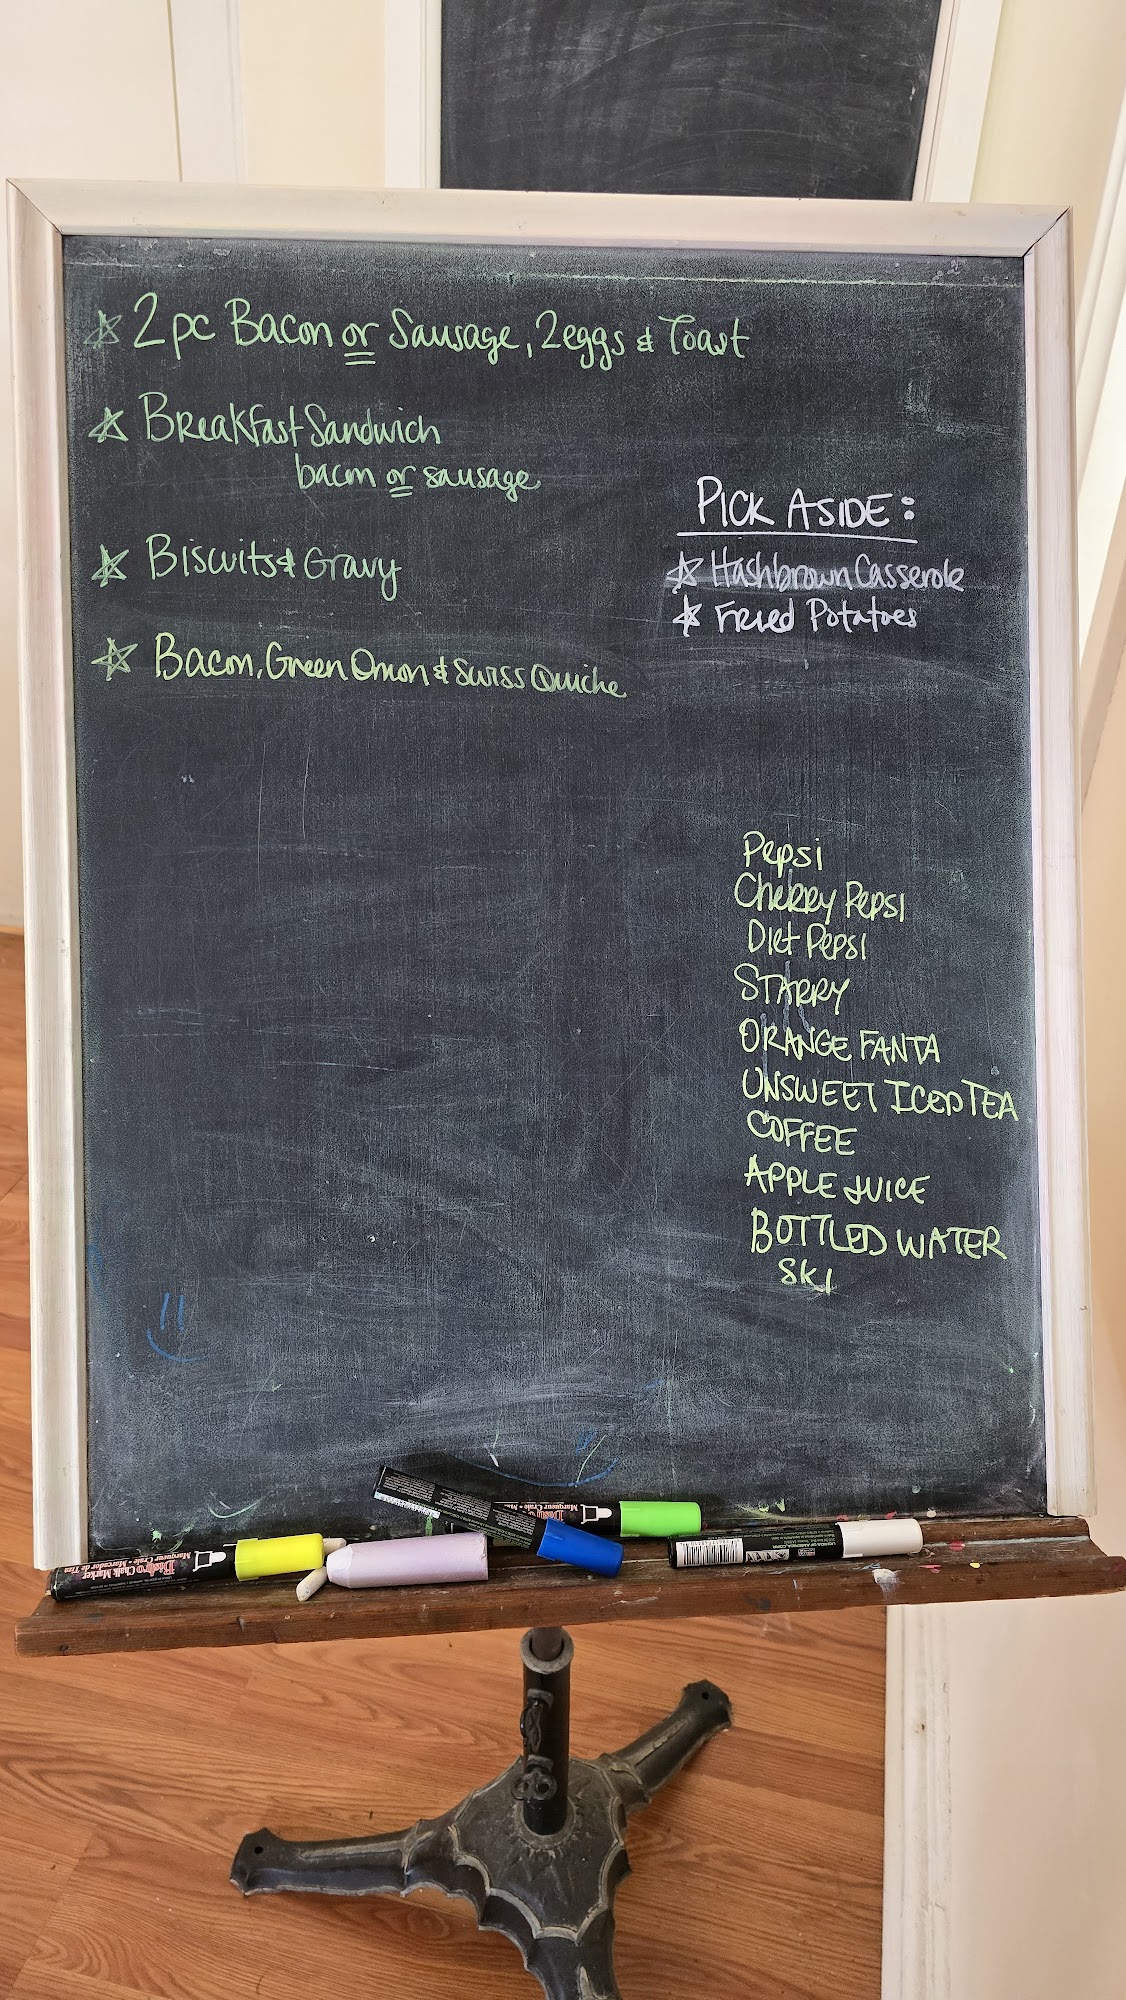 ☆ 2pc Bacon or Sausage, 2eggs & Toast
☆ Breakfast Sandwich
bacon or sausage
☆ Biscuits & Gravy
☆ Bacon, Green Onion & Swiss Quiche
PICK A SIDE:
☆ Hashbrown Casserole
☆ Fried Potatoes
Pepsi
Cherry Pepsi
Diet Pepsi
STARRY
ORANGE FANTA
UNSWEET ICED TEA
COFFEE
APPLE JUICE
BOTTLED WATER
SKI
Bistro Chalk Marker
Marqueur Craie • Marcador de Tiza
Marqueur Craie